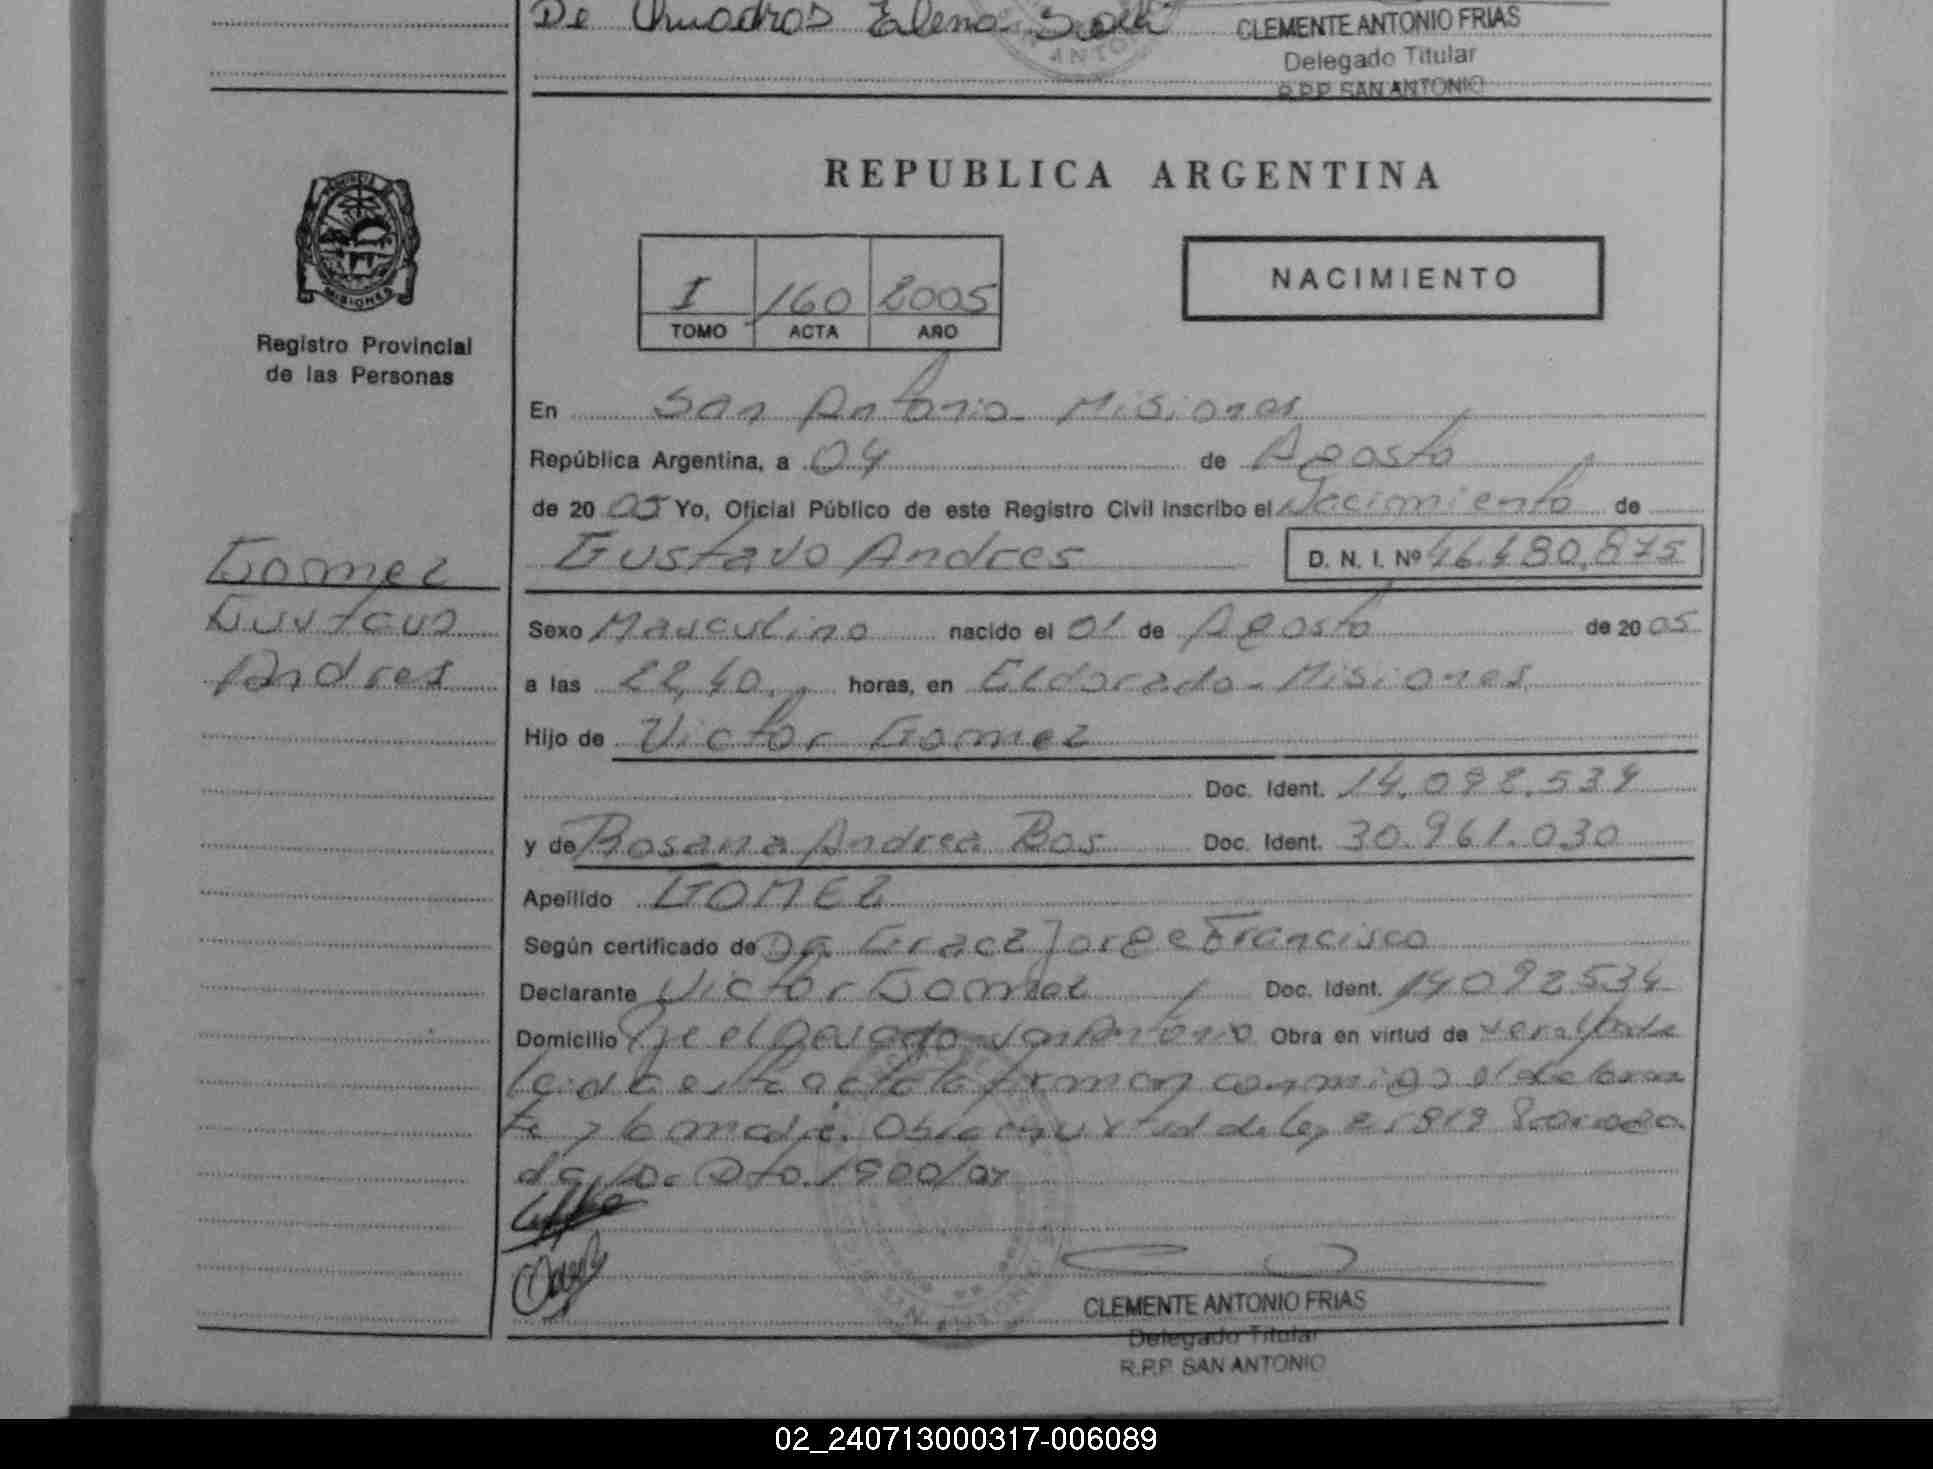 De Quadros Elena
CLEMENTE ANTONIO FRIAS
Delegado Titular
R.P.P. SAN ANTONIO
PROVINCIA DE
MISIONES
Registro Provincial
de las Personas
REPUBLICA ARGENTINA
I 160 2005
TOMO ACTA AÑO
NACIMIENTO
En San Antonio - Misiones
República Argentina, a 04 de Agosto
de 20 05 Yo, Oficial Público de este Registro Civil inscribo el Nacimiento de
Gustavo Andres D. N. I. Nº 46.480.875
Gomez
Gustavo
Andres
Sexo Masculino nacido el 01 de Agosto de 20 05
a las 22,40 horas, en Eldorado - Misiones
Hijo de Victor Gomez
Doc. Ident. 14.092.534
y de Rosana Andrea Bos Doc. Ident. 30.961.030
Apellido GOMEZ
Según certificado de Da Gracz Jorge Francisco
Declarante Victor Gomez Doc. Ident. 14092534
Domicilio San Antonio Obra en virtud de
Leida esta acta la firman conmigo el declaran
te y la madre. Obra en virtud de Ley
Dto. 1900/04
SAN ANTONIO
CLEMENTE ANTONIO FRIAS
Delegado Titular
R.P.P. SAN ANTONIO
02_240713000317-006089